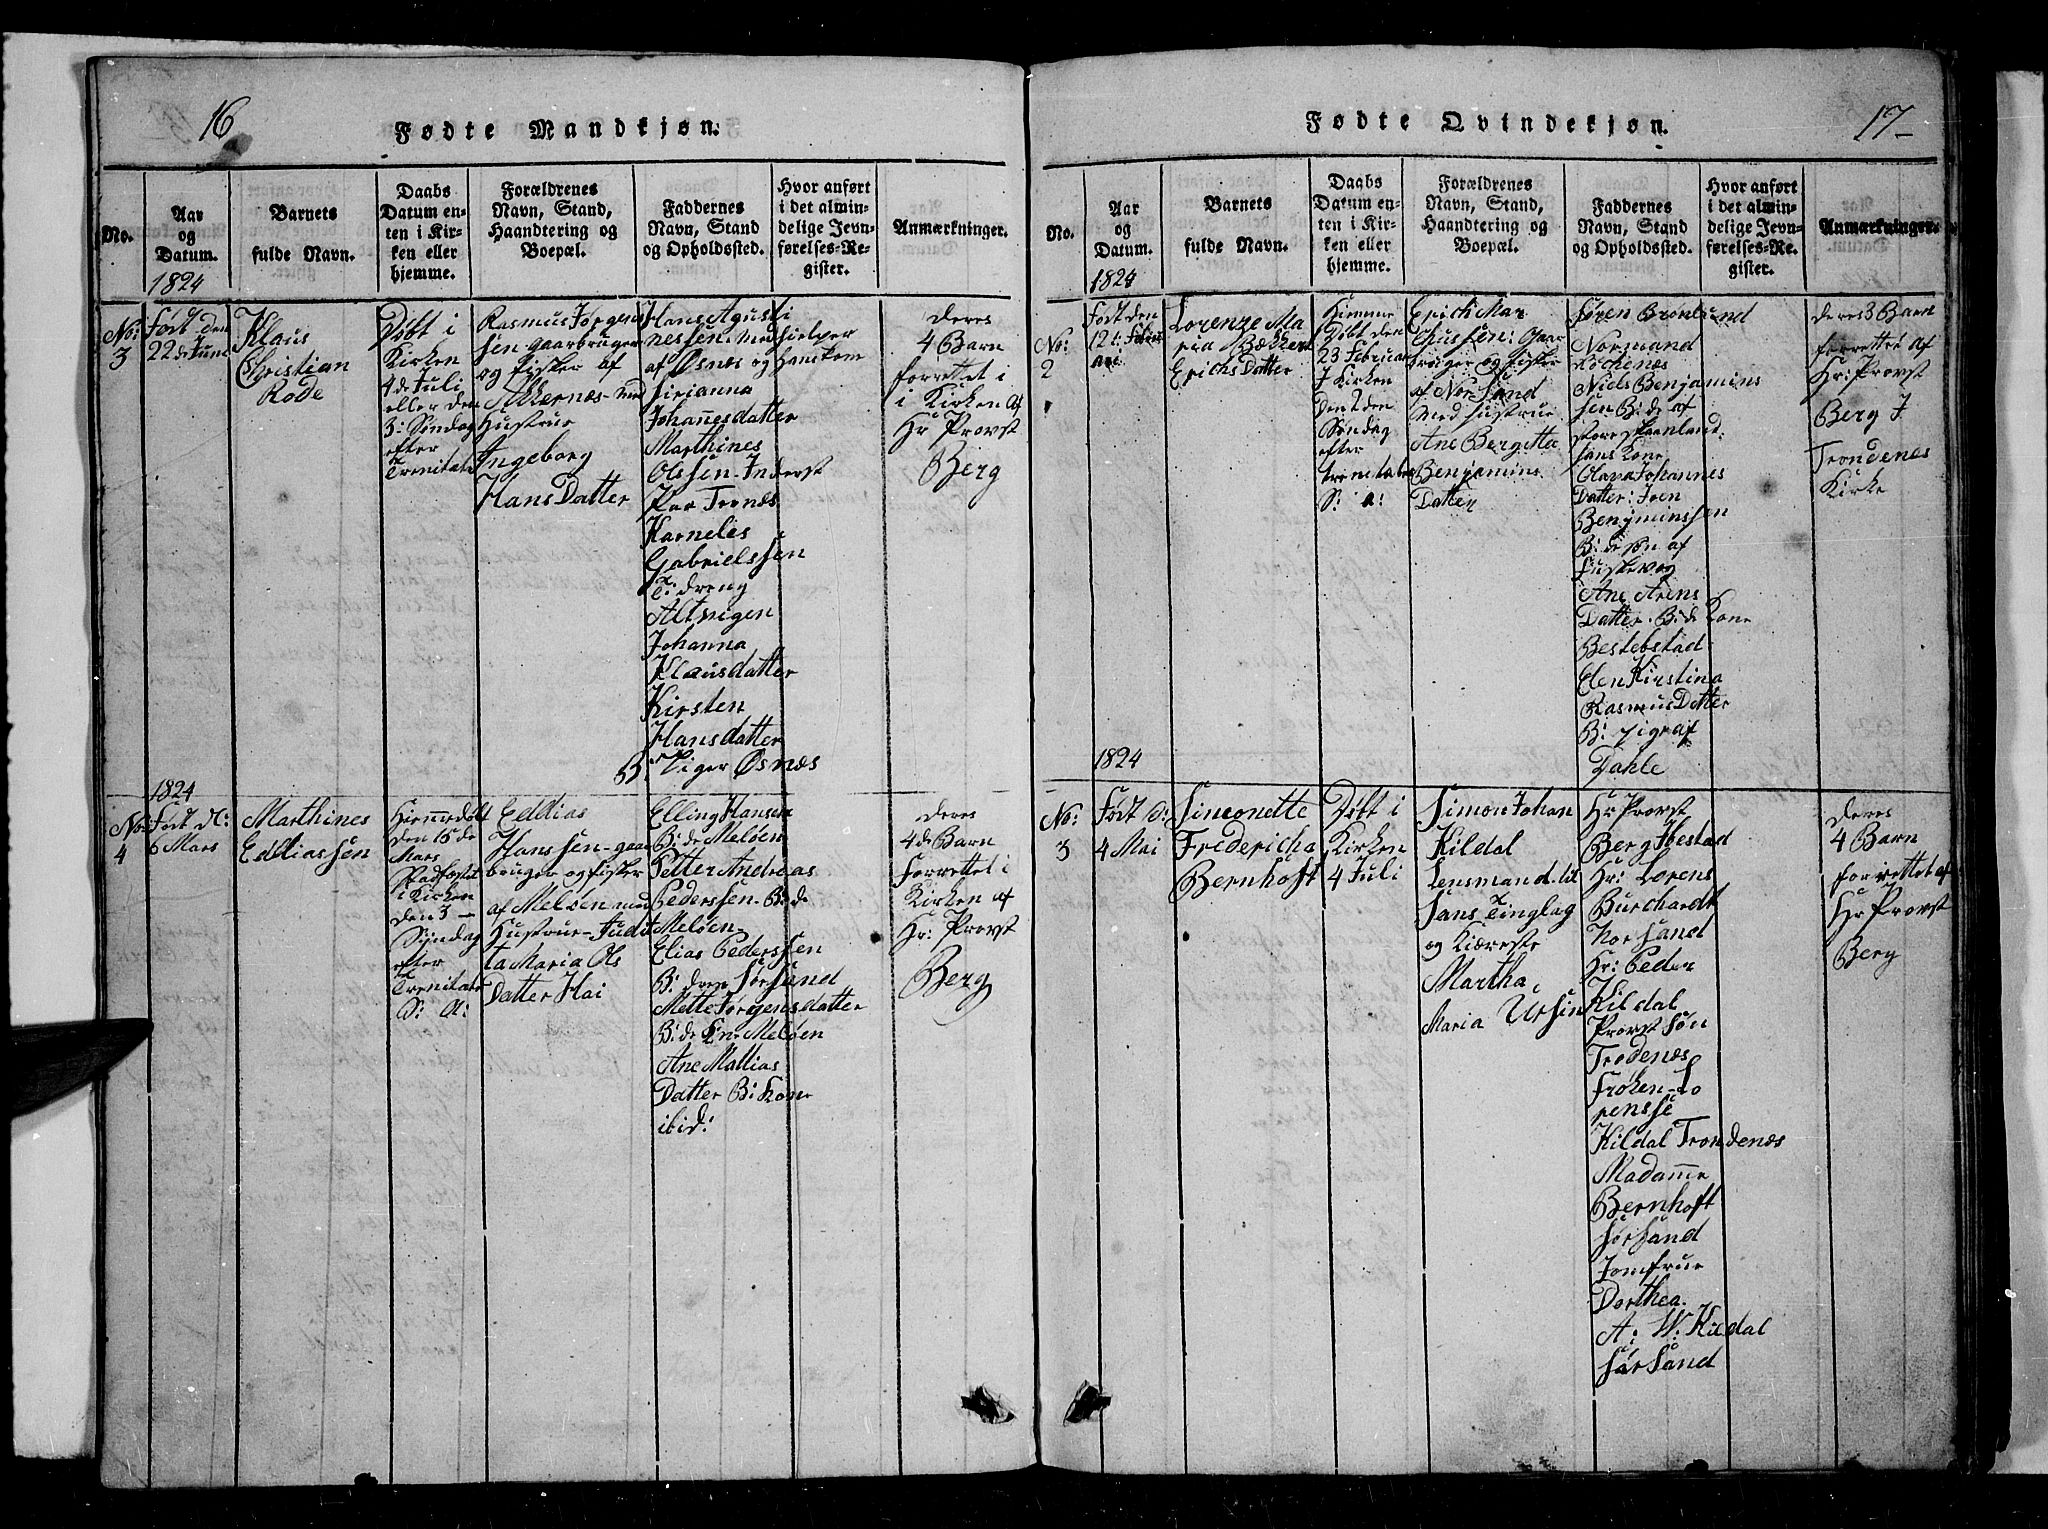 16
Fødte Mandkjøn.
No.
Aar
og
Datum.
1824
Barnets
fulde Navn.
Daabs
Datum en-
ten i Kir-
ken eller
hjemme.
Forældrenes
Navn, Stand,
Haandtering og
Boepæl.
Faddernes
Navn, Stand
og Opholdssted.
Hvor anført
i det almin-
delige Jevn-
førelses-Re-
gister.
Anmærkninger.
No:
3
Født den
22de Juni
Klaus
Christian
Rode
Döbt i
Kirken
4de Juli
eller den
3: Söndag
efter
Trenitatis
Rasmus Jørgens
sen gaarbruger
og fisker af
Akkernæs med
Hustrue
Ingeborg
Hans Datter
Hans Agusti
nessen Medhielper
af Øsnæs og Hanskone
Siri anna
Johannesdatter
Marthines
Olssen Inderst
Paa Tronæs
Karneles
Gabrielssen
T: dreng
Altvigen
Johanna
Klausdatter
Kirsten
Hansdatter
B: Piger Øsnæs
deres
4 Barn
forrettet i
i Kirken af
Hr Provst
Berg
1824
No:
4
Født d:
6 Mars
Marthines
Eddiassen
Hiemmedöbt
den 15de
Mars
Stadfæstet
i Kirken
den 3 -
Syndag
efter
Trenitatis
S: A:
Eddias
Hanssen gaar
bruger og fisker
af Meløen med
Hustrue Judit
ta Maria Ols
Datter Hai
Elling Hansen
B:de Meløen
Petter Andreas
Pederssen B:de
Meløen
Elias Pederssen
B: dreng Sørsand
Mette Jørgensdatter
B:de Kne Meløen
Ane Mattias
Datter B: Kone
ibid:
deres
4de Barn
Forrettet i
Kirken af
Hr: Provst
Berg
Fødte Qvindekjøn.
17
No.
Aar
og
Datum.
1824
Barnets
fulde Navn.
Daabs
Datum en-
ten i Kir-
ken eller
hjemme.
Forældrenes
Navn, Stand,
Haandtering og
Boepæl.
Faddernes
Navn, Stand
og Opholdssted.
Hvor anført
i det almin-
delige Jevn-
førelses-Re-
gister.
Anmærkninger.
No:
2
Født den
12t: Febru
ari
Lorenze Ma
ria Bækker
Erichs Datter
Himme
Döbt den
23 Februar
I Kirken
Den 2den
Söndag
efter
trenetatis
S: a:
Erich Mar
thussen: Gaar
bruger og fisker
af Nor Sand
Med hustrue
Ane Bergitta
Benjamins
Datter
Søren Brónlund
Normand
Röckenes
Niels Benjamins
sen B:de af
store skaanland:
hans Kone
Olapa Johannes
Datter: Iven
Benjminssen
B: de søn af
Luskevog
Ane Arens
Datter. B:de Kone
Bestebstad
Elen Kirstina
Rasmus Datter
B: pige af
Dahle
deres 3 Barn
forrettet af
Hr: Provst
Berg I
Trondenes
Kirke
1824
No:
3
Født d:
4 Mai
Simonette
Fredericha
Bernhoft
Döbt i
Kirken
4 Juli
Simon Johan
Kildal
Lensmand til
Sans Tinglag
og Kiæreste
Martha
Maria Ursin
Hr Provst
Berg Ibestad
Hr: Lorens
Burchardt
Nor Sand
Hr: Peder
Kildal
Provst Søn
Trodenæs
Frøken Lo
rensse
Kildal Trondenæs
Madamme
Bernhoft
Sør Sand
Jomfrue
Dorthea
A: W: Kildal
Sør Sand
deres
4 Barn
forrettet af
Hr Provst
Berg